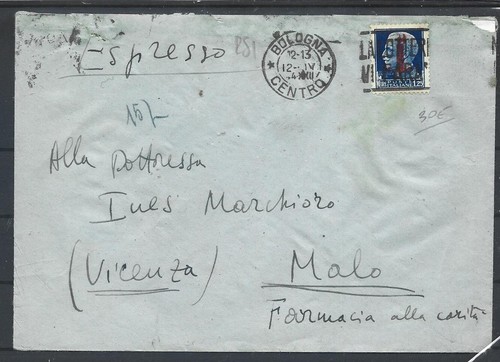 Espresso
BOLOGNA
CENTRO
12-13
15/-
30€
Alla Dottoressa
Ines Marchioro
(Vicenza) Malo
Farmacia alla carità